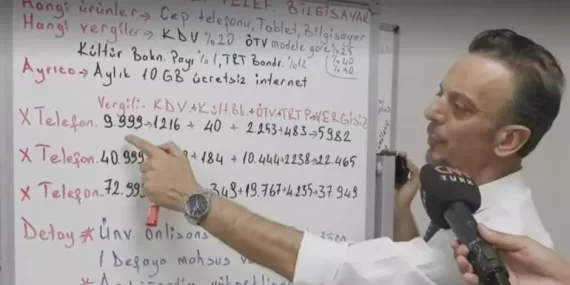 Hangi ürünler → Cep telefonu, Tablet, Bilgisayar
Hangi vergiler → KDV %20 ÖTV modele göre %25
%40
%50
Kültür Bakn. Payı %1, TRT Bandr. %12
Ayrıca → Aylık 10 GB ücretsiz internet
Vergili. KDV + Kült.bk + ÖTV + TRT P = VERGİSİZ
X Telefon. 9.999 → 1216 + 40 + 2253 + 483 → 5982
X Telefon. 40.999 + 184 + 10.444 + 2238 = 22.465
X Telefon. 72.99 349 + 19.767 + 4.235 → 37.949
Detay * Ünv. önlisans
(Defaya mahsus
CNN
TÜRK